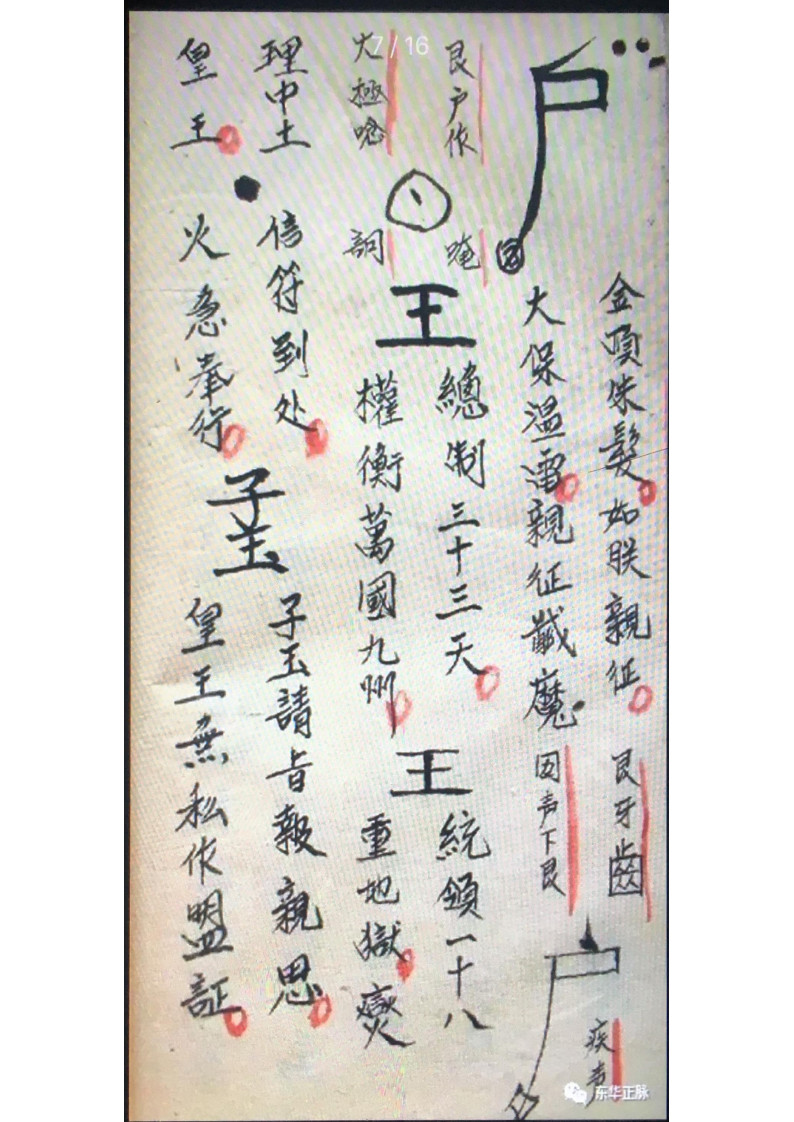 7 / 16
尸
金頂朱髮如朕親征
大保溫雷親征馘魔
艮牙齒
因声下艮
疾声
艮户作
火極唸
唵
訶
王
總制三十三天
權衡萬國九州
王
統領一十八
重地獄
理中土
皇王
信符到处
火急奉行
子玉
子玉請旨報親恩
皇王無私作盟証
东华正脉